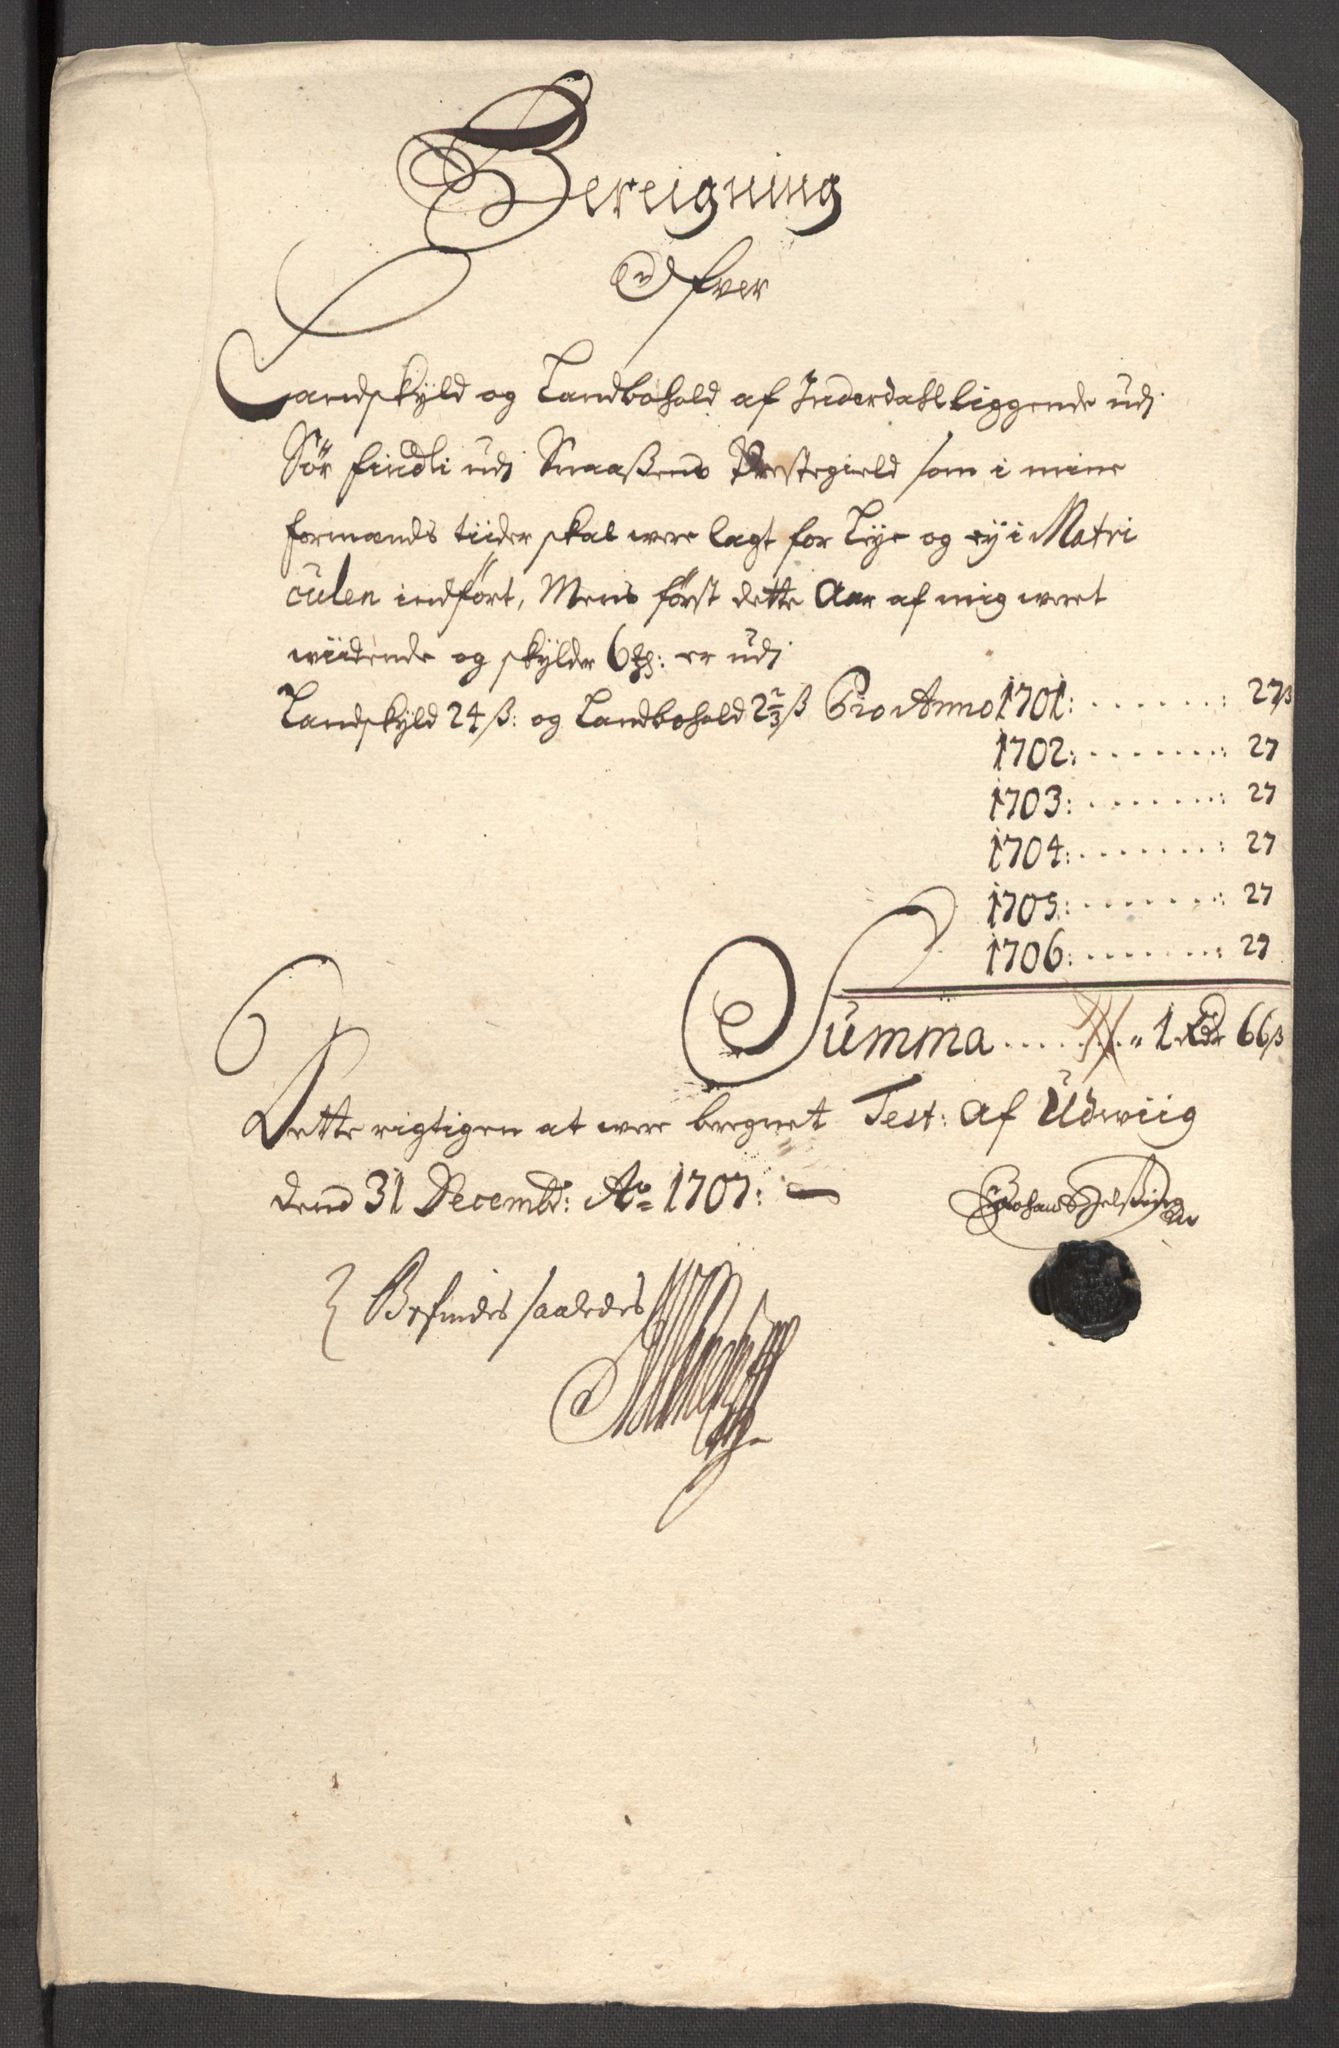 Bereigning
Ofver
Landskyld og Landbohold af Inderdahl liggende udj
Sør findli udj Snaaßens Prestegield som i mine
formands tiider skal were lagt for Leye og ey i Matri
culen indført, Mens først dette Aar af mig weret
wiidende og skylder 6 er udj
Landskyld 24 ß: og Landbohold 2⅔ ß Pro Anno 1701: . . . . . . : 27ß
1702: . . . . . . . : 27
1703: . . . . . . . : 27
1704: . . . . . . . : 27
1705: . . . . . . . : 27
1706: . . . . . . . : 27
Summa . . . . . . 1 Rdr 66ß
Dette rigtigen at were beregnet Test: af Udwiig
dend 31 Decembr: Ao 1707: —
Befindes saaledes